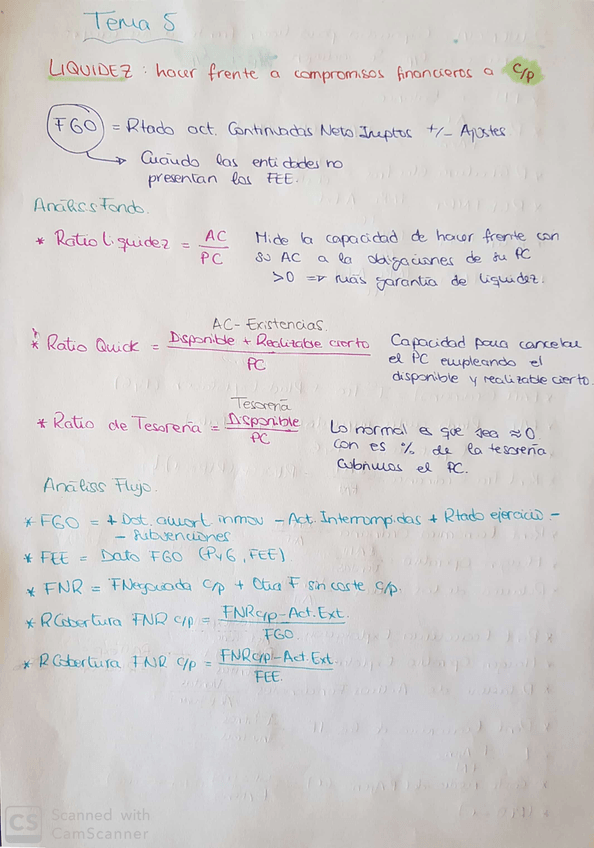 Tema 5
LIQUIDEZ: hacer frente a compromisos financieros a c/p
FGO = Rtado act. Continuadas Neto Imptos +/- Ajustes
Cuándo las entidades no
presentan los FEE.
Análisis Fondo.
* Ratio Liquidez = AC / PC
Mide la capacidad de hacer frente con
su AC a la obligaciones de su PC
>0 => más garantía de liquidez.
* Ratio Quick = Disponible + Realizable cierto / PC
AC - Existencias.
Capacidad para cancelar
el PC empleando el
disponible y realizable cierto.
* Ratio de Tesorería = Disponible / PC
Tesorería
Lo normal es que sea ≈ 0
con es % de la tesorería
cubrimos el PC.
Análisis Flujo.
* FGO = + Dot. amort inmov - Act. Interrumpidas + Rtado ejercicio -
- subvenciones
* FEE = Dato FGO (PyG, FEE)
* FNR = FNegociada c/p + Otra F sin coste c/p.
* RCobertura FNR c/p = FNRc/p - Act. Ext. / FGO
* RCobertura FNR c/p = FNRc/p - Act. Ext / FEE.
CS Scanned with
CamScanner